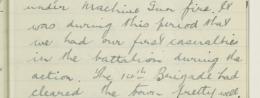 under Machine Gun fire. It
was during this period that
we had our first casualties
in the battalion during the
action. The 14th Brigade had
cleared the town pretty well